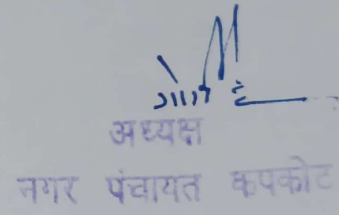 अध्यक्ष
नगर पंचायत कपकोट